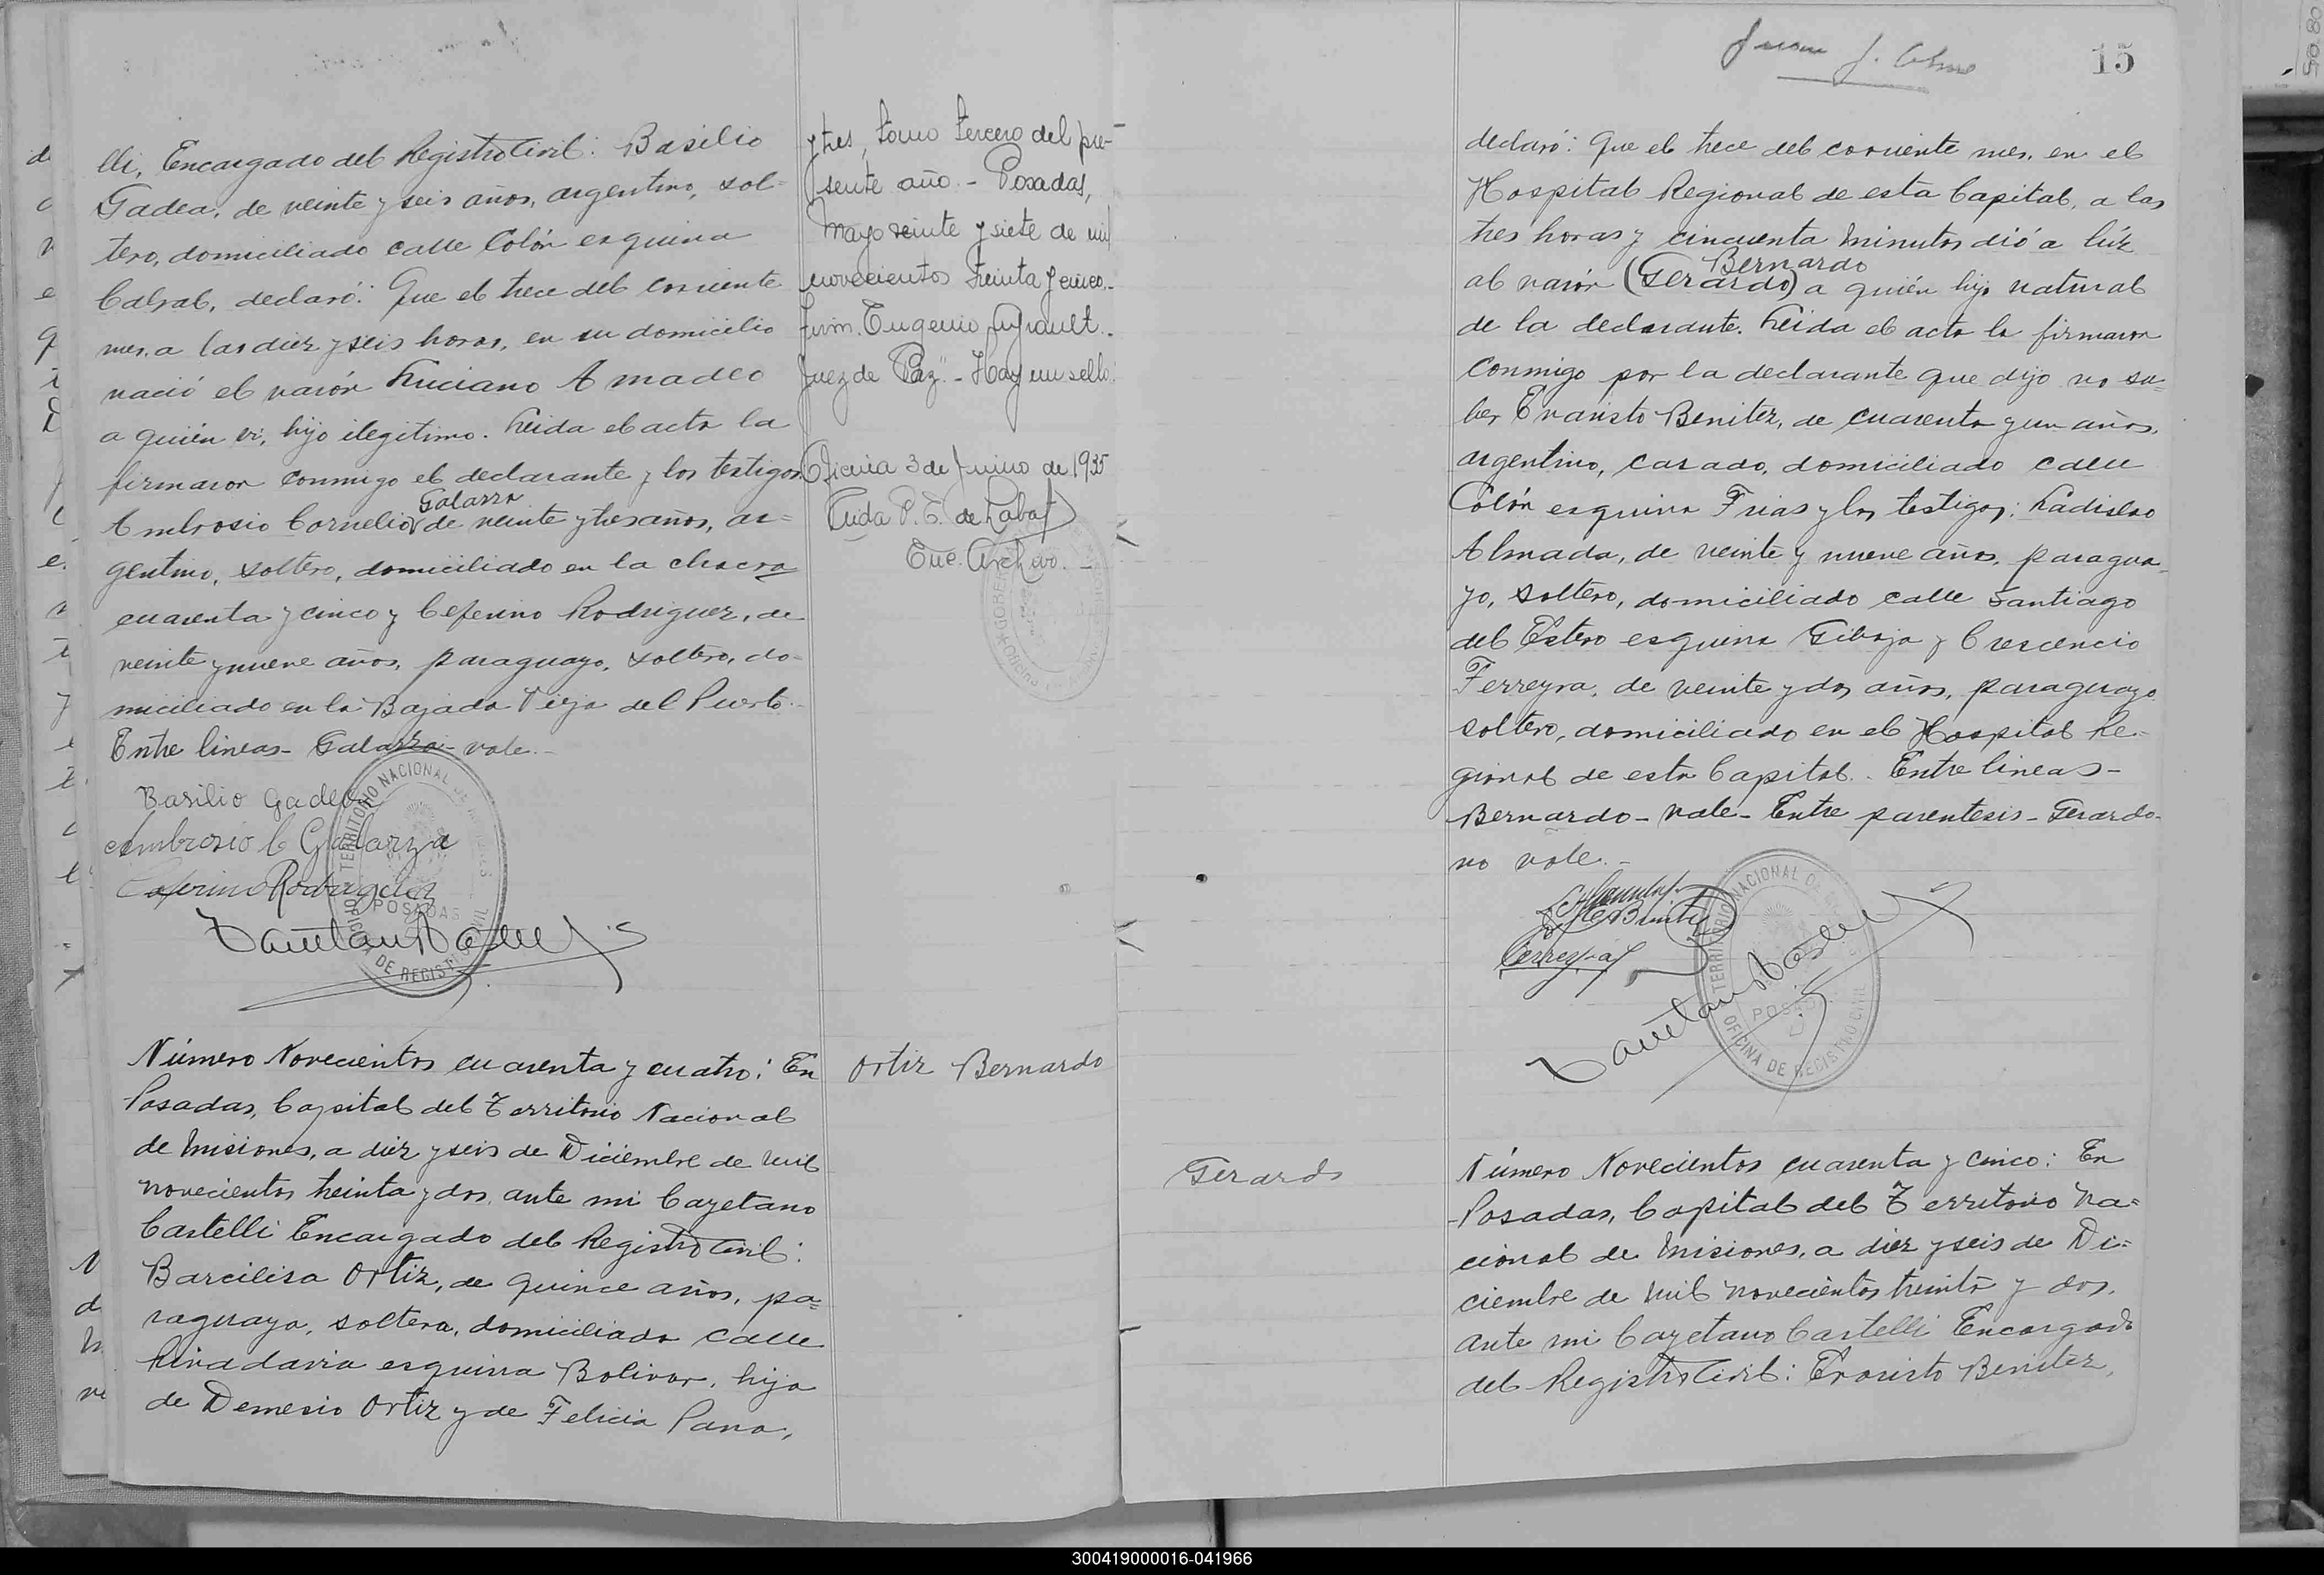 lli, Encargado del Registro Civil: Basilio
Gadea, de veinte y seis años, argentino, sol-
tero, domiciliado calle Colón esquina
Cabral, declaró: Que el trece del corriente
mes, a las diez y seis horas, en su domicilio
nació el varón Luciano Amadeo
a quién vi, hijo ilegítimo. Leida el acta la
firmaron conmigo el declarante y los testigos
Galarza
Ambrosio Cornelio de veinte y tres años, ar=
gentino, soltero, domiciliado en la chacra
cuarenta y cinco y Ceferino Rodriguez, de
veinte y nueve años, paraguayo, soltero, do-
miciliado en la Bajada Vieja del Puerto.-
Entre lineas- Galarza- vale.-
Basilio Gadea
Ambrosio C Galarza
Ceferino Rodriguez
TERRITORIO NACIONAL DE MISIONES
POSADAS
OFICINA DE REGISTRO CIVIL
y tres, tomo tercero del pre-
sente año.- Posadas,
Mayo veinte y siete de mil
novecientos treinta y cinco.-
Firm. Eugenio
Juez de Paz".- Hay un sello.
Oficina 3 de Junio de 1935
Aida P. T. de Labat
Enc. Archivo.-
Número Novecientos cuarenta y cuatro: En
Posadas, Capital del Territorio Nacional
de Misiones, a diez y seis de Diciembre de mil
novecientos treinta y dos, ante mi Cayetano
Castelli Encargado del Registro Civil:
Barcilisa Ortiz, de quince años, pa=
raguaya, soltera, domiciliada calle
Rivadavia esquina Bolivar, hija
de Demesio Ortiz y de Felicia Pana,
Ortiz Bernardo
15
declaró: Que el trece del corriente mes, en el
Hospital Regional de esta Capital, a las
tres horas y cincuenta minutos dió a lúz
Bernardo
al varón (Gerardo) a quién hijo natural
de la declarante. Leida el acta la firmaron
conmigo por la declarante que dijo no sa=
ber Evaristo Benitez, de cuarenta y un años,
argentino, casado, domiciliado calle
Colón esquina Frias y los testigos: Ladislao
Almada, de veinte y nueve años, paragua_
yo, soltero, domiciliado calle Santiago
del Estero esquina Gibaja y Crescencio
Ferreyra, de veinte y dos años, paraguayo
soltero, domiciliado en el Hospital Re-
gional de esta Capital.- Entre lineas-
Bernardo- vale- Entre parentesis- Gerardo-
no vale.-
TERRITORIO NACIONAL DE
POSADAS
OFICINA DE REGISTRO CIVIL
Gerardo
Número Novecientos cuarenta y cinco: En
Posadas, Capital del Territorio Na=
cional de Misiones, a diez y seis de Di=
ciembre de mil novecientos treinta y dos,
ante mi Cayetano Castelli Encargado
del Registro Civil: Evaristo Benitez,
300419000016-041966